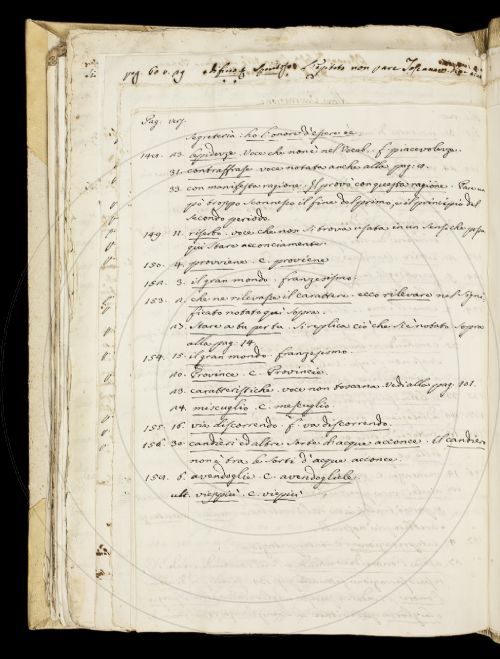 pag. 60 v. 29 Spirito non pare Toscano
Pag. vers.
Segreteria: ho l'onore d'essere &c.
148. 23. lepidezze. voce che non è nel Vocab. f. piacevolezze.
31. contraffrase. voce notata anche alla pag. 4.
33. con manifesta ragione. Il provo con questa ragione. Pare un
pò troppo sconnesso il fine del primo, e il principio del
secondo periodo.
149. 11. riserbo. voce che non si trova usata in un senso che possa
qui stare acconciamente.
150. 4. provviene. C. proviene
152. 3. il gran mondo. franzesismo.
153. 2. che ne rilevassa il carattere. ecco rilevare nel signi-
ficato notato qui sopra.
23. Stare a tu per tu. Si replica ciò che si è notato sopra
alla pag. 14.
154. 15. il gran mondo. franzesismo.
20. Province. C. Provincie.
23. caratteristiche. voce non toscana. Vedi alla pag. 101.
24. miscuglio. C. mescuglio.
155. 16. via discorrendo. f. va discorrendo.
156. 30. candieri ed altre sorte di acque acconce. Il candiero
non è tra le sorti d'acque acconce.
159. 6. avendoglie C. avendogliele.
ult. vieppiù. C. vie più